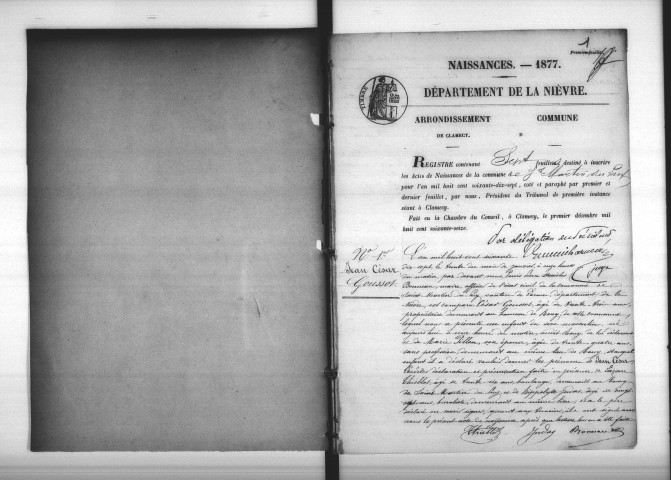 1
Premier feuillet
NAISSANCES. — 1877.
DÉPARTEMENT DE LA NIÈVRE.
ARRONDISSEMENT COMMUNE
DE CLAMECY. D
REGISTRE contenant Sept feuillets destiné à inscrire
les Actes de Naissances de la commune de St Martin du Puy
pour l'an mil huit cent soixante-dix-sept, coté et paraphé par premier et
dernier feuillet, par nous, Président du Tribunal de première instance
séant à Clamecy.
Fait en la Chambre du Conseil, à Clamecy, le premier décembre mil
huit cent soixante-seize.
Par délégation du Président
juge
No 1er
Jean César
Goussot
L'an mil huit cent soixante
dix sept, le trente du mois de janvier, à onze heures
du matin, par devant nous Louis
maire officier de l'état civil de la commune de
Saint Martin du Puy, canton de Lormes, département de la
Nièvre, est comparu César Goussot, âgé de trente huit ans,
propriétaire demeurant au hameau de de cette commune,
lequel nous a présenté un enfant du sexe masculin, né
aujourd'hui à une heure du matin,
et de Marie son épouse, âgée de trente quatre ans,
sans profession, demeurant au même lieu de auquel
enfant il a déclaré vouloir donner les prénoms de Jean César
Lesdites déclaration et présentation faites en présence de Lazare
âgé de trente six ans, demeurant au bourg
de Saint Martin du Puy, et de Hippolyte âgé de vingt
sept ans, demeurant au même lieu, et le père
déclaré ne savoir signer, quant aux témoins, ils ont signé avec
nous le présent acte de naissance après que lecture leur a été faite